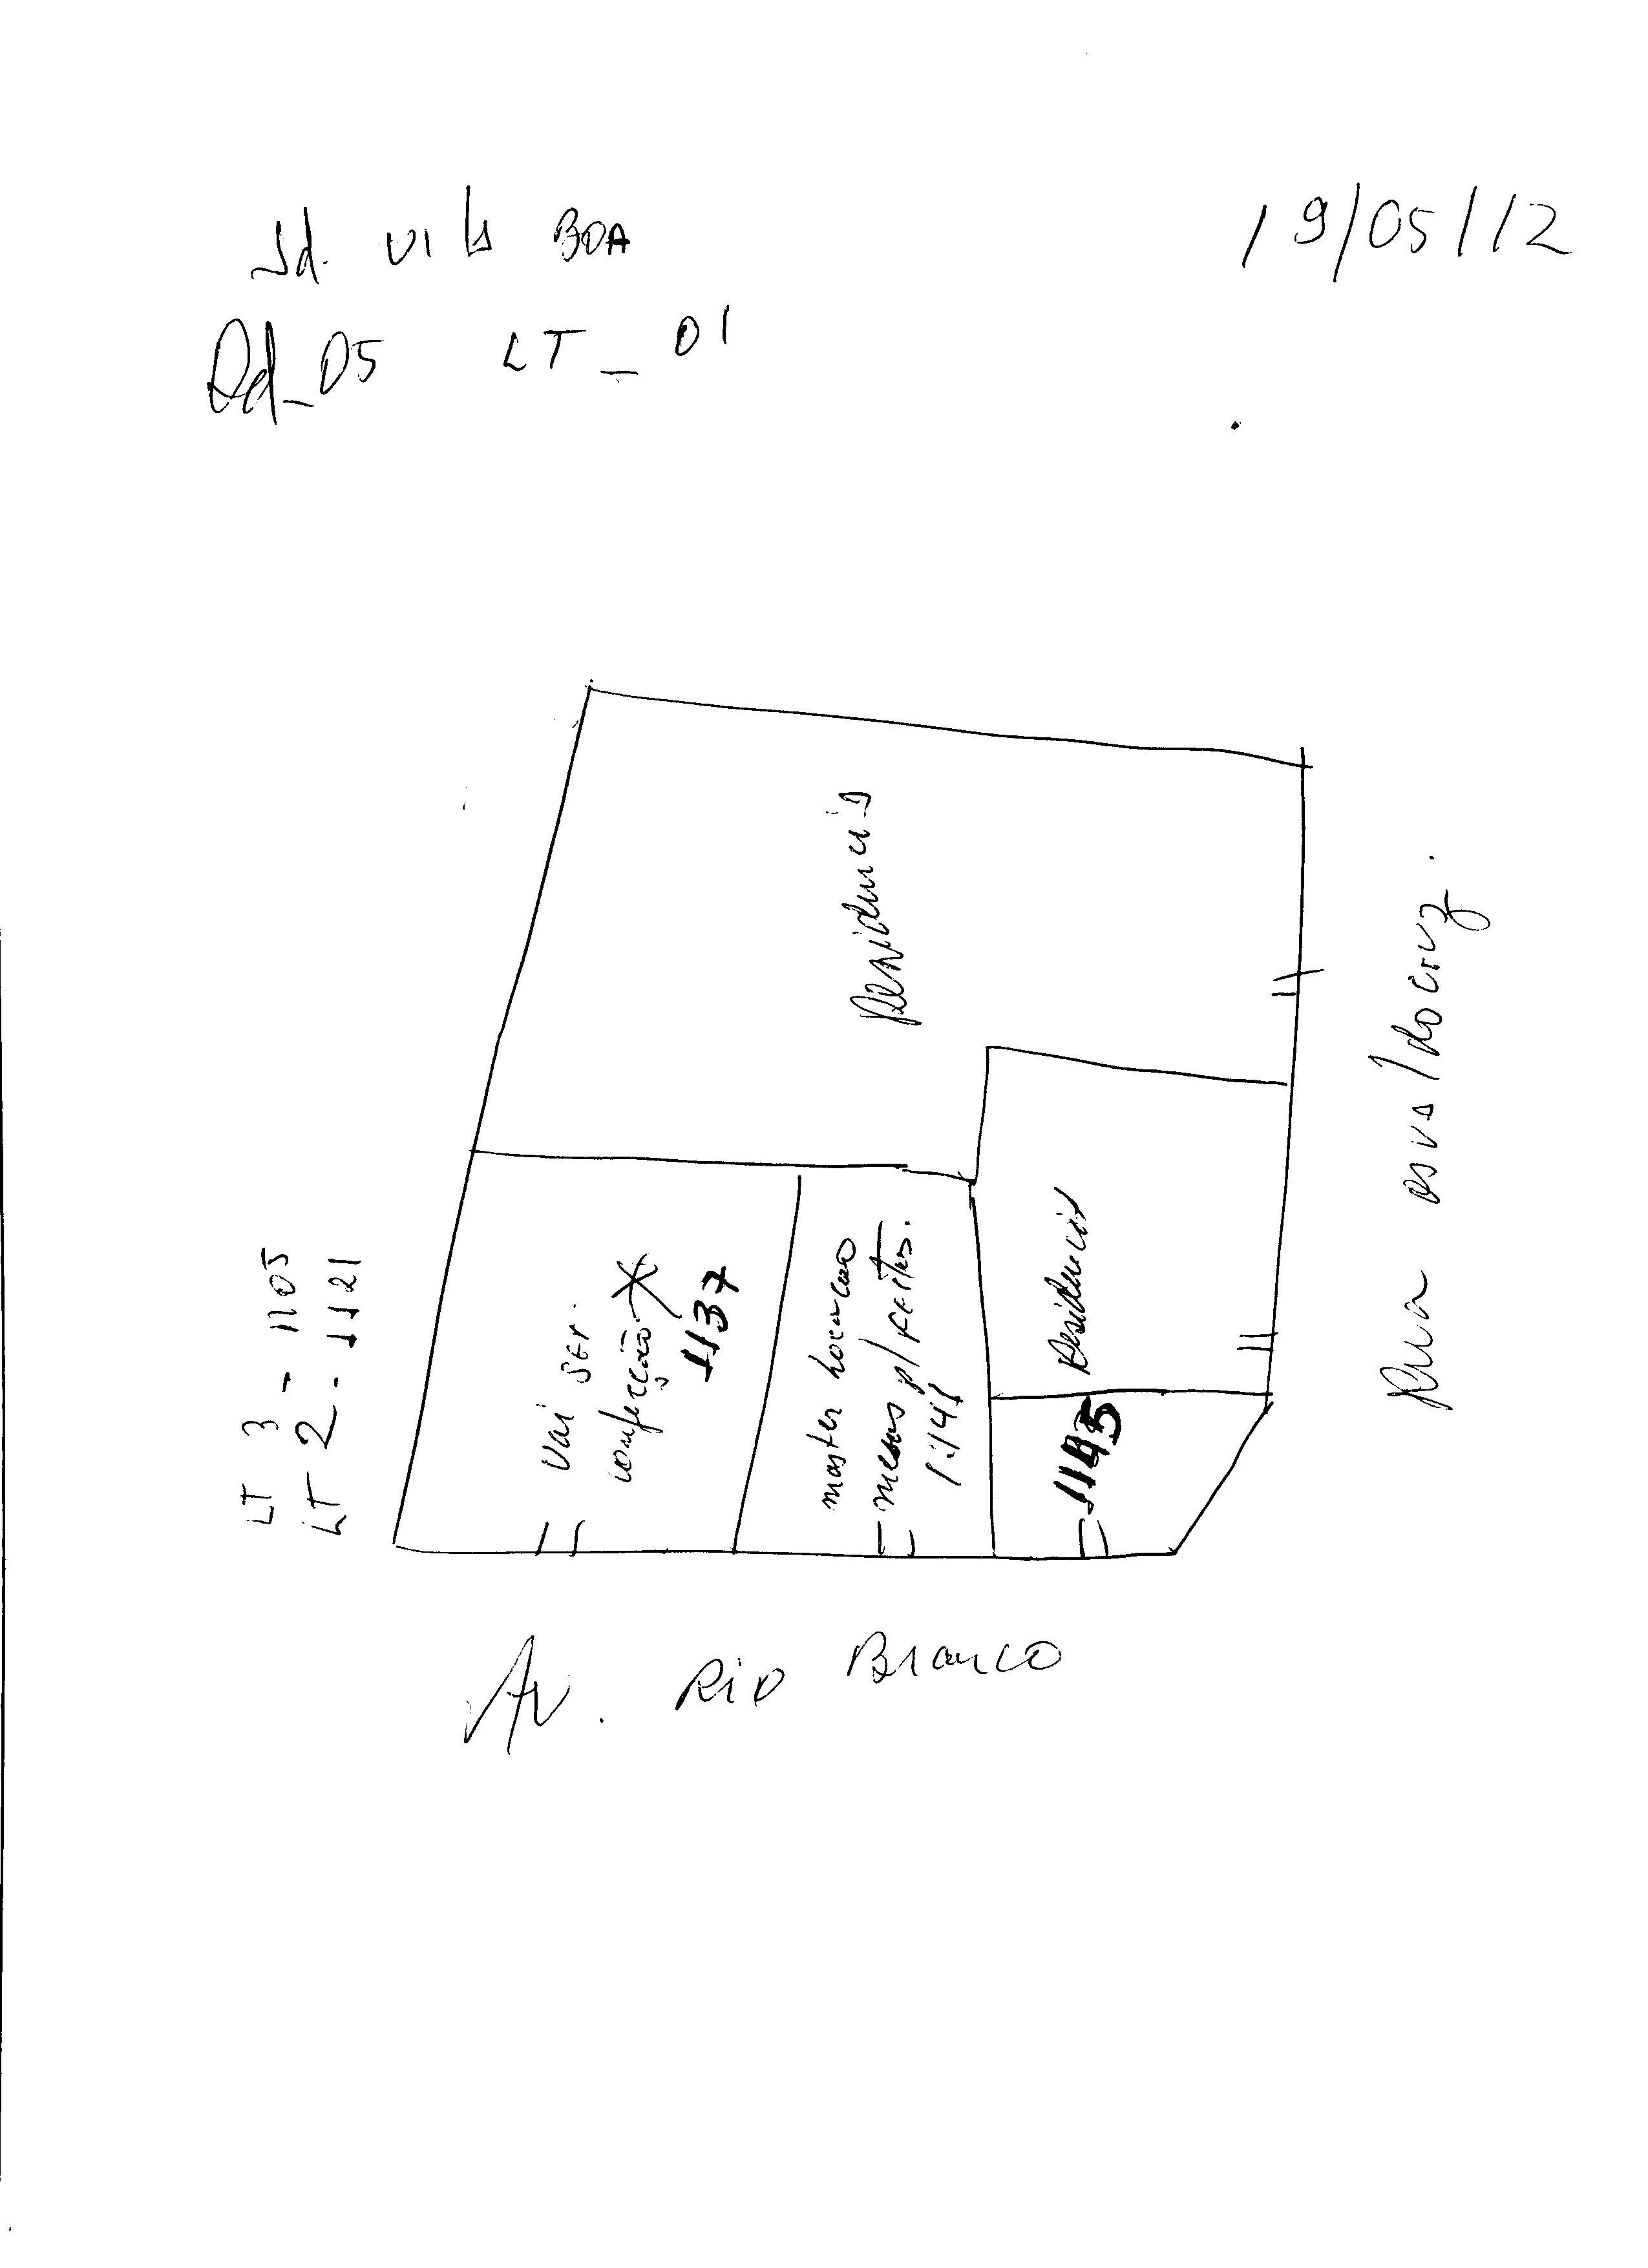 Jd. Vila BOA
19/05/12
Qd_05 LT_01
Residencia
Rua osvaldo cruz.
LT 3 - 1105
LT 2 - 1121
Vai ser
confecção
1137
master Locacao
mesas p/ festas.
1141
Residencia
1145
Av. Rio Branco